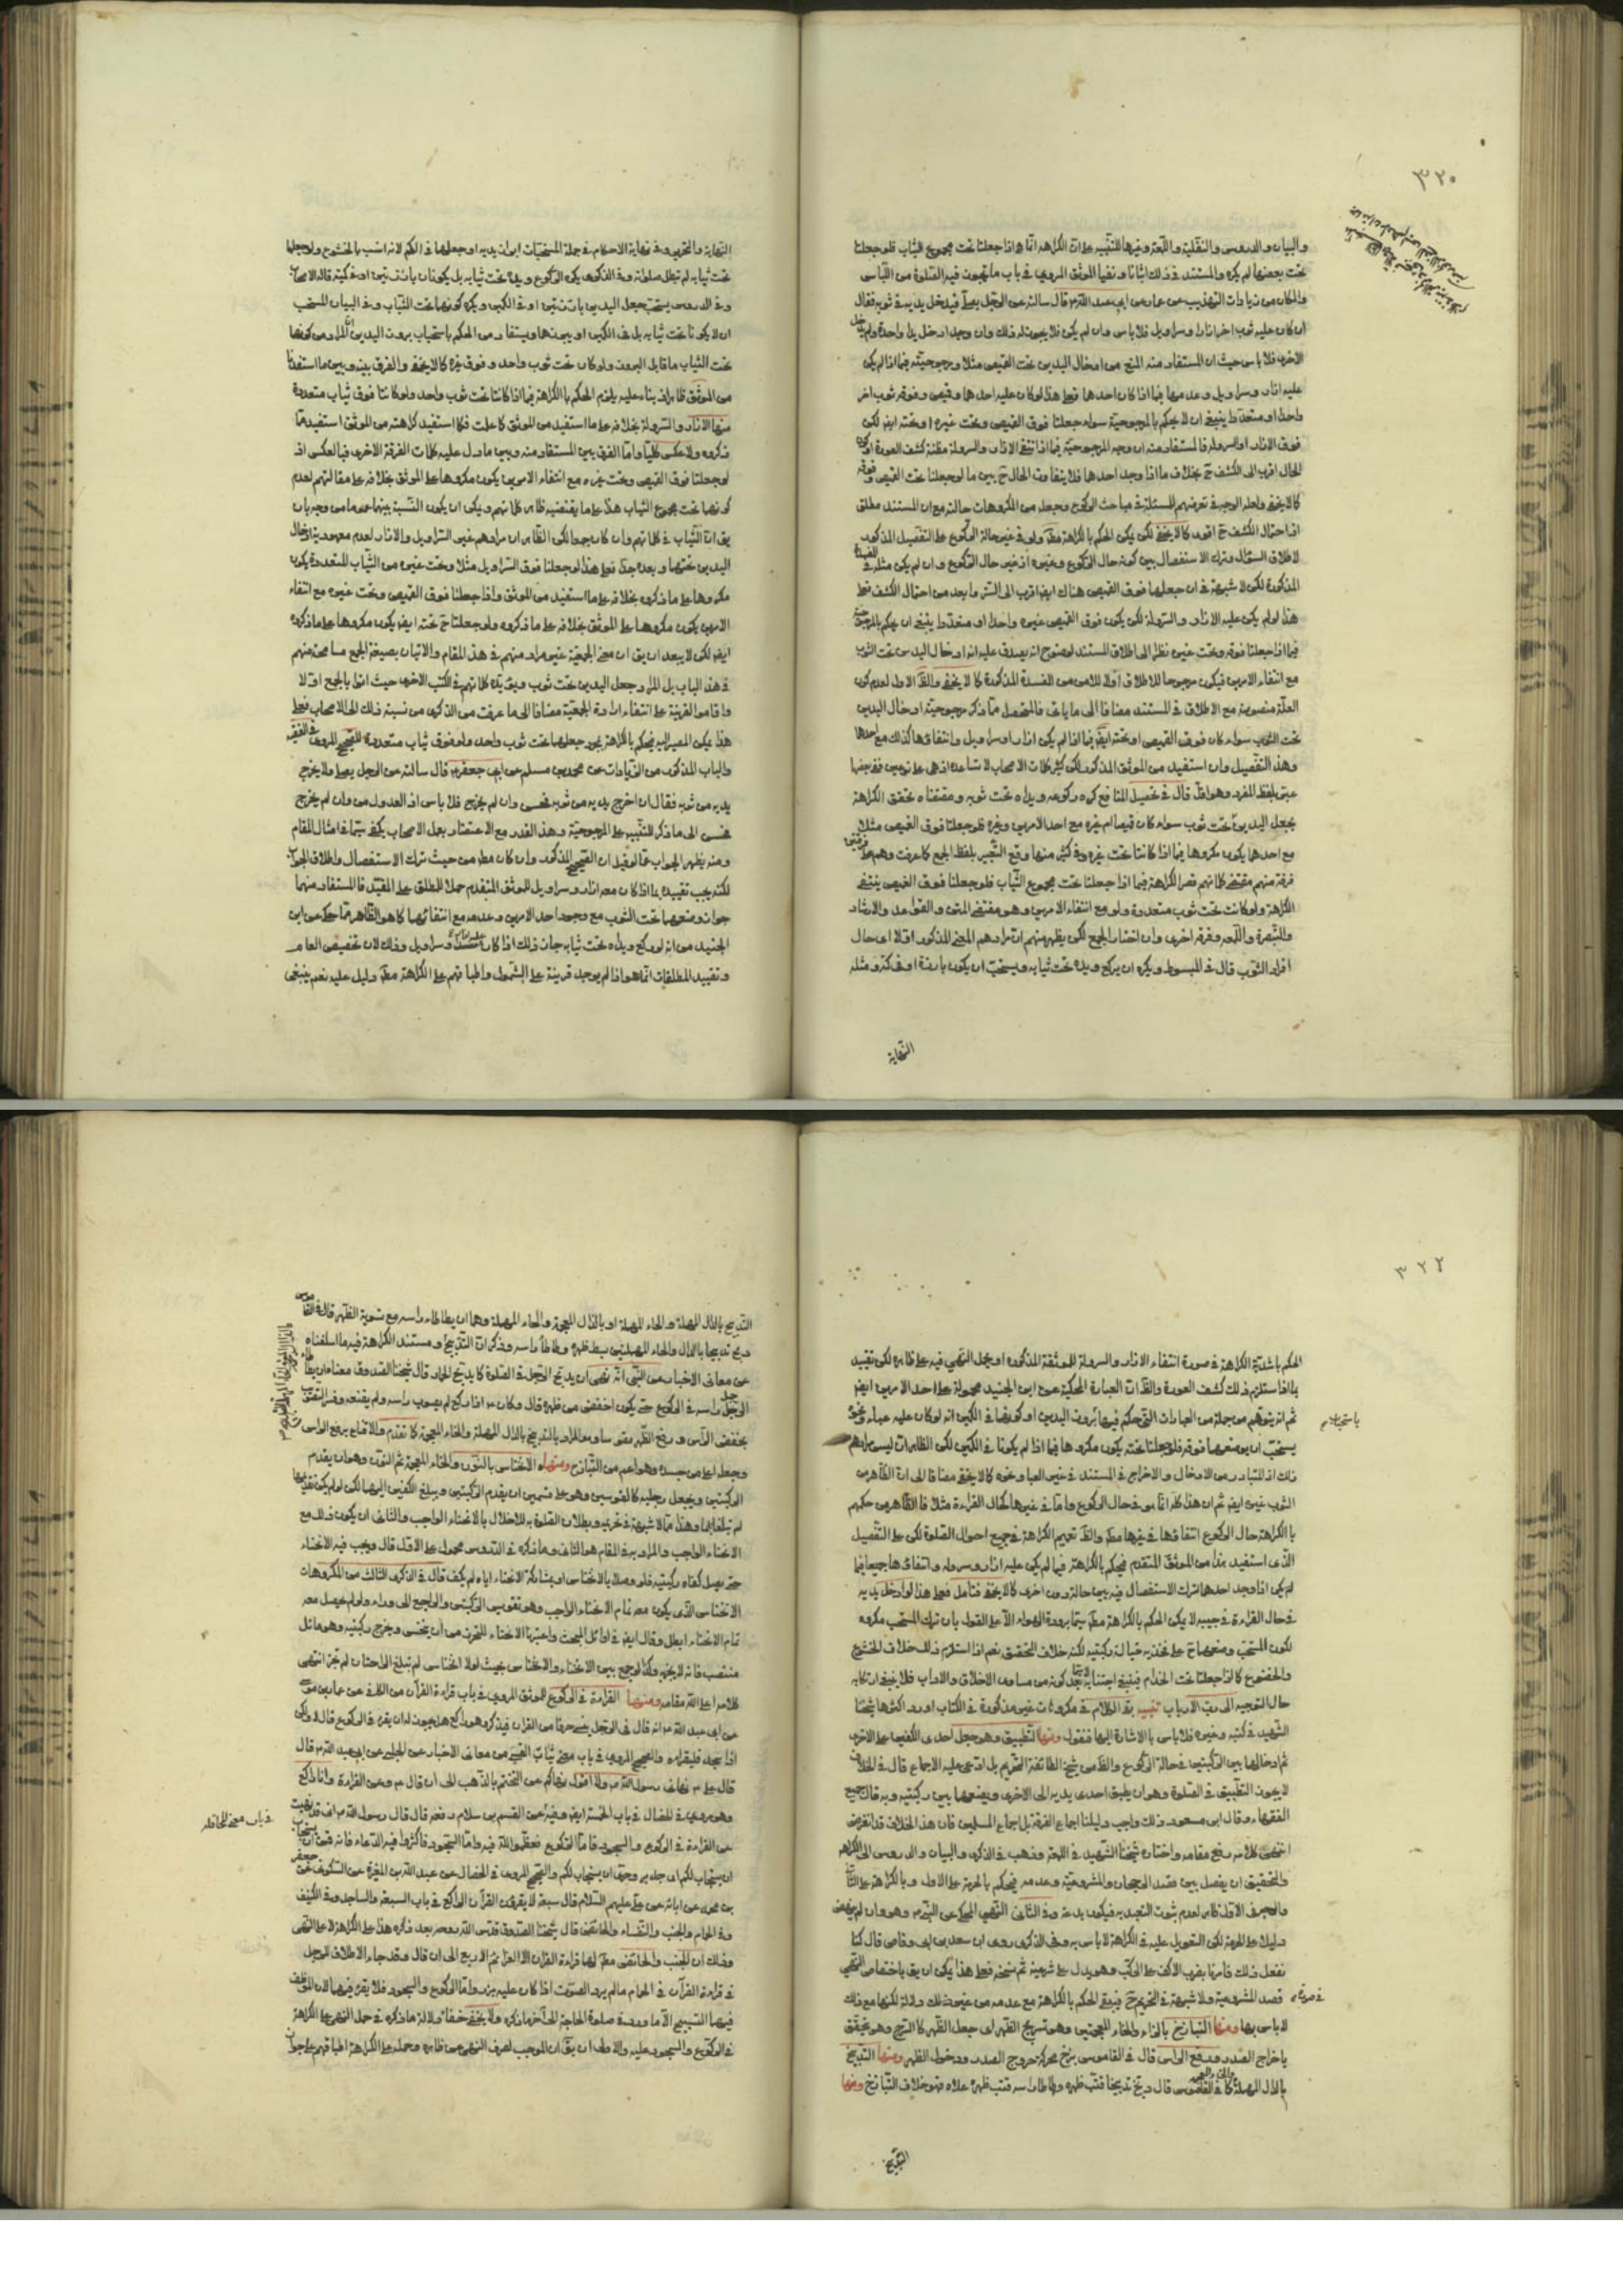 ٣٢٠
والبيان والدروس والنفلية واللمعة وغيرها للتنبيه على ان الكراهة انما هو اذا جعلتا تحت مجموع الثياب فلو جعلتا
تحت بعضها لم يكره والمستند في ذلك اثباتا ونفيا الموثق المروي في باب ما يجوز فيه الصلوة من اللباس
والمكان من زيادات التهذيب عن عمار عن ابي عبد الله قال سالته عن الرجل يصلي فيدخل يديه في ثوبه فقال
ان كان عليه ثوب اخر ازار او سراويل فلا باس وان لم يكن فلا يجوز له ذلك وان وجد ادخل يدا واحدة ولم يدخل
الاخرى فلا باس حيث ان المستفاد منه المنع من ادخال اليدين تحت القميص مثلا ومرجوحيته فيما اذا لم يكن
عليه ازار وسراويل وعدمها فيما اذا كان احدهما فعلى هذا لو كان عليه احدهما وقميص وفوقه ثوب اخر
واحدا او متعددا ينبغي ان لا يحكم بالمرجوحية سواء جعلتا فوق القميص وتحت غيره او تحته ايضا لكن
فوق الازار او السروال فالمستفاد منه ان وجه المرجوحية فيما اذا انتفى الازار والسروال مظنة كشف العورة
الحال اقرب الى الكشف ح بخلاف ما اذا وجد احدهما فلا يتفاوت الحال ح بين ما لو جعلتا تحت القميص وفوقه
كما لا يخفى ولعل الوجه في تعرضهم للمسئلة في مباحث الركوع وجعله من المكروهات حالته مع ان المستند مطلق
اذ احتمال الكشف ح اقوى كما لا يخفى لكن يكون الحكم بالكراهة مط ولو في غير حالة الركوع على التفصيل المذكور
لاطلاق السؤال وترك الاستفصال بين كونه حال الركوع وغيره اذ غير حال الركوع وان لم يكن مثله في
المذكورة لكن لا شبهة في ان جعلها فوق القميص هناك ايضا اقرب الى الستر وابعد من احتمال الكشف فعلى
هذا لو لم يكن عليه الازار والسروال لكن يكون فوق القميص غيره واحدا او متعددا ينبغي ان يحكم بالمرجوحية
فيما اذا جعلتا فوقه وتحت غيره نظرا الى اطلاق المستند لوضوح انه يصدق عليه انه ادخال اليدين تحت الثوب
مع انتفاء الامرين فيكون مرجوحا للاطلاق اولا للامن من المفسدة المذكورة كما لا يخفى والظ الاول لعدم كون
العلة منصوصة مع الاطلاق في المستند مضافا الى ما ياتي فالمتحصل مما ذكر مرجوحية ادخال اليدين
تحت الثوب سواء كان فوق القميص او تحته ايضا فيما اذا لم يكن ازار او سراويل وانتفاؤها كذلك مع احدهما
وهذا التفصيل وان استفيد من الموثق المذكور لكن كثير كلمات الاصحاب لا تساعده اذ هي على نوعين ففي بعضها
عبر بلفظ المفرد وهو اقل قال في تحصيل المنافع كره ركوعه ويداه تحت ثوبه ومقتضاه تحقق الكراهة
بجعل اليدين تحت ثوب سواء كان قميصا ام غيره مع احد الامرين وغيره فلو جعلتا فوق القميص مثلا
مع احدهما يكون مكروها فيما اذا كانتا تحت غيره وفي كثير منها وقع التعبير بلفظ الجمع كما عرفت وهم على فرقتين
فرقة منهم مقتضى كلامهم قصر الكراهة فيما اذا جعلتا تحت مجموع الثياب فلو جعلتا فوق القميص ينتفي
الكراهة ولو كانت تحت ثوب متعددة ولو مع انتفاء الامرين وهو مقتضى المتن والقواعد والارشاد
والتبصرة واللمعة وفرقة اخرى وان اختار الجمع لكن يظهر منهم ان مرادهم المعنى المذكور اولا اي حال
افراد الثوب قال في المبسوط ويكره ان يركع ويده تحت ثيابه ويستحب ان يكون بارزة او في كمه ومثله
النهاية
النهاية والتحرير وفي نهاية الاحكام في جملة المستحبات ابراز يديه او جعلهما في الكم لانه انسب بالخشوع ولو جعلهما
تحت ثيابه لم تبطل صلوته وفي الذكرى يكره الركوع ويداه تحت ثيابه بل يكونان بارزتين او في كميه قاله الاصحاب
وفي الدروس يستحب جعل اليدين بارزتين او في الكمين ويكره كونهما تحت الثياب وفي البيان المستحب
ان لا يكونا تحت ثيابه بل في الكمين او بين وهما ويستفاد من الحكم باستحباب بروز اليدين ان المراد من كونهما
تحت الثياب ما قابل البروز ولو كان تحت ثوب واحد وفوق غيره كما لا يخفى والفرق بينه وبين ما استفدنا
من الموثق ظاهر اذ بناء عليه يلزم الحكم بالكراهة فيما اذا كانتا تحت ثوب واحد ولو كانتا فوق ثياب متعددة
منها الازار والسروال بخلافه على ما استفيد من الموثق كما علمت فكلما استفيد كراهته من الموثق استفيد مما
ذكروه ولا عكس كليا واما الفرق بين المستفاد منه وبين ما دل عليه كلمات الفرقة الاخرى فبالعكس اذ
لو جعلتا فوق القميص وتحت غيره مع انتفاء الامرين يكون مكروها على الموثق بخلافه على مقالتهم لعدم
كونهما تحت مجموع الثياب هذا على ما يقتضيه ظاهر كلامهم ويمكن ان يكون النسبة بينهما عموما من وجه بان
يقال ان الثياب في كلامهم وان كان جمعا لكن الظاهر ان مرادهم غير السراويل والازار لعدم معهودية ادخال
اليدين تحتها وبعده جدا فعلى هذا لو جعلتا فوق السراويل مثلا وتحت غيره من الثياب المتعددة يكون
مكروها على ما ذكروه بخلافه على ما استفيد من الموثق واذا جعلتا فوق القميص وتحت غيره مع انتفاء
الامرين يكون مكروها على الموثق بخلافه على ما ذكروه ولو جعلتا ح تحته ايضا يكون مكروها على ما ذكروه
ايضا لكن لا يبعد ان يق ان معنى الجمعية غير مراد منهم في هذا المقام والاتيان بصيغة الجمع مسامحة منهم
في هذا الباب بل المراد جعل اليدين تحت ثوب ويؤيده كلامهم في الكتب الاخرى حيث اتوا بالجمع اولا
واقاموا القرينة على انتفاء ارادة الجمعية مضافا الى ما عرفت من الذكرى من نسبة ذلك الى الاصحاب فعلى
هذا يمكن المصير اليه فيحكم بالكراهة بمجرد جعلهما تحت ثوب واحد ولو فوق ثياب متعددة للصحيح المروي في الفقيه
والباب المذكور من الزيادات عن محمد بن مسلم عن ابي جعفر قال سالته عن الرجل يصلي ولا يخرج
يديه من ثوبه فقال ان اخرج يديه من ثوبه فحسن وان لم يخرج فلا باس اذ العدول من وان لم يخرج
فحسن الى ما ذكر للتنبيه على المرجوحية وهذا القدر مع الاعتضاد بعمل الاصحاب يكفي سيما في امثال المقام
ومنه يظهر الجواب عما لو قيل ان الصحيح المذكور وان كان مط من حيث ترك الاستفصال واطلاق الجواب
لكنه يجب تقييده بما اذا كان معه ازار وسراويل للموثق المتقدم حملا للمطلق على المقيد فالمستفاد منهما
جواز وضعهما تحت الثوب مع وجود احد الامرين وعدمه مع انتفائهما كما هو الظاهر مما حكي عن ابن
الجنيد من انه لو ركع ويداه تحت ثيابه جاز ذلك اذا كان عليه مئزر وسراويل وذلك لان تخصيص العام
وتقييد المطلقات انما هو اذا لم يوجد قرينة على الشمول واطباقهم على الكراهة مط دليل عليه نعم ينبغي
٣٢٢
الحكم باشدية الكراهة في صورة انتفاء الازار والسروال للموثقة المذكورة او يحمل النهي فيه على ظاهره لكن تقييد
بما اذا استلزم ذلك كشف العورة والظ ان العبارة المحكية عن ابن الجنيد محمولة على احد الامرين ايضا
ثم انه يتوهم من جملة من العبارات التي حكم فيها ببروز اليدين او كونهما في الكمين انه لو كان عليه عباء ونحوه
يستحب ان يضعهما فوقه فلو جعلتا تحته يكون مكروها فيما اذا لم يكونا في الكمين لكن الظاهر ان ليس مرادهم
ذلك اذ المتبادر من الادخال والاخراج في المستند في غير العبا ونحوه كما لا يخفى مضافا الى ان الظاهر من
الثوب غيره ايضا ثم ان هذا كله انما هو في حال الركوع واما في غيرها كحال القراءة مثلا فالظاهر من حكمهم
بالكراهة حال الركوع انتفاؤها في غيرها مط والظ تعميم الكراهة في جميع احوال الصلوة لكن على التفصيل
الذي استفيد بدا من الموثق المتقدم فيحكم بالكراهة فيما لم يكن عليه ازار وسروال وانتفاؤها جميعا فيما
لم يكن اذا وجد احدهما لترك الاستفصال فيه بين حالة دون اخرى كما لا يخفى فتامل فعلى هذا لو ادخل يديه
في حال القراءة في جيبه لا يمكن الحكم بالكراهة مط سيما برودة الهواء الا على القول بان ترك المستحب مكروه
لكون المستحب وضعهما ح على فخذيه حيال ركبتيه لكنه خلاف التحقيق نعم اذا استلزم ذلك خلاف الخشوع
والخضوع كما لو جعلتا تحت الحزام فينبغي اجتنابه لكونه من مساوي الاخلاق والاداب فلا ينبغي ارتكابه
حال التوجه الى رب الارباب تنبيه بقي الكلام في مكروهات غير مذكورة في الكتاب اورد اكثرها شيخنا
الشهيد في كتبه وغيره فلا باس بالاشارة اليها فنقول ومنها التطبيق وهو جعل احدى الكفين على الاخرى
ثم ادخالهما بين الركبتين في حالة الركوع والظ من شيخ الطائفة التحريم بل ادعى عليه الاجماع قال في الخلاف
لا يجوز التطبيق في الصلوة وهو ان يطبق احدى يديه الى الاخرى ويضعهما بين ركبتيه وبه قال جميع
الفقهاء وقال ابن مسعود ذلك واجب دليلنا اجماع الفرقة بل اجماع المسلمين فان هذا الخلاف قد انقرض
انتهى كلامه رفع مقامه واختاره شيخنا الشهيد في اللمعة وذهب في الذكرى والبيان والدروس الى الكراهة
والتحقيق ان يفصل بين قصد الرجحان والمشروعية وعدمه فيحكم بالحرمة على الاول وبالكراهة على الثاني
والوجه في الاول ظاهر لعدم ثبوت التعبد به فيكون بدعة وفي الثاني النهي المحكي عن النبي ص وهو وان لم ينهض
دليلا على الحرمة لكن التعويل عليه في الكراهة لا باس به وفي الذكرى روى ان سعد بن ابي وقاص قال كنا
نفعل ذلك فامرنا بضرب الاكف على الركب وهو يدل على شرعيته ثم نسخه فعلى هذا يمكن ان يق باختصاص النهي
قصد المشروعية ولا شبهة في التحريم ح فيبقى الحكم بالكراهة مع عدمه من غير ذلك دلالة لكنها مع ذلك
لا باس بها ومنها التبازخ بالزاء والخاء المعجمتين وهو تسريح الظهر اي جعل الظهر كالسرج وهو يتحقق
باخراج الصدر ورفع الراس قال في القاموس بزخ محركة خروج الصدر ودخول الظهر ومنها التدبيخ
بالدال المهملة والخاء المعجمة كما في القاموس قال دبخ تدبيخا قبب ظهره وطاطا راسه قبب ظهره علاه فهو خلاف التبازخ ومنها
باستحباب
في صورة
التدبيح
التدبيح بالدال المهملة والحاء المهملة او بالذال المعجمة والحاء المهملة وهما ان يطاطا راسه مع تسوية الظهر قال في القاموس
دبح تدبيحا بالدال والحاء المهملتين بسط ظهره وطاطا راسه وذكر ان التذبيح ومستند الكراهة فيه ما اسلفناه
عن معاني الاخبار من النبي انه نهى ان يدبح الرجل في الصلوة كما يدبح الحمار قال شيخنا الصدوق معناه ان يطاطا
الرجل راسه في الركوع حتى يكون اخفض من ظهره قال وكان ع اذا ركع لم يصوب راسه ولم يقنعه وفسر التصويب
بخفض الراس ورفع الظهر
وجعله اعلى من جسده وهو اعم من التبازخ ومنها الانخناس بالنون والخاء المعجمة ثم النون وهو ان يقدم
الركبتين ويجعل رجليه كالقوسين وهو على قسمين ان يقدم الركبتين ويبلغ الكفين اليهما لكن لو لم يكن تقديمهما
لم تبلغا اليهما وهذا مما لا شبهة في تحريمه وبطلان الصلوة به للاخلال بالانحناء الواجب والثاني ان يكون ذلك مع
الانحناء الواجب والمراد به في المقام هو الثاني وما ذكره في الدروس محمول على الاول قال ويجب فيه الانحناء
حتى يصل كفاه ركبتيه فلو وصلا بالانخناس او بمشاركة الانحناء اياه لم يكف قال في الذكرى الثالث من المكروهات
الانخناس الذي يكون معه تمام الانحناء الواجب وهو تقويس الركبتين والتراجع الى وراء ولو لم يحصل معه
تمام الانحناء ابطل وقال ايضا في اوائل المبحث واعتبرنا الانحناء للتحرز من ان ينخنس ويخرج ركبتيه وهو مائل
منتصب فانه لا يجزيه وكذا لو جمع بين الانحناء والانخناس بحيث لولا انخناس لم تبلغ الراحتان لم يجز انتهى
كلامه اعلى الله مقامه ومنها القراءة في الركوع للموثق المروي في باب قراءة القران من الكافي عن عمار بن موسى
عن ابي عبد الله ع انه قال في الرجل ينسى حرفا من القران فيذكره وهو راكع هل يجوز له ان يقرء في الركوع قال لا ولكن
اذا سجد فليقراه والصحيح المروي في باب معنى ثياب القسي من معاني الاخبار عن الحلبي عن ابي عبد الله ع قال
قال علي ع نهاني رسول الله ص ولا اقول نهاكم عن التختم بالذهب الى ان قال ع وعن القراءة وانا راكع
وهو مروي في الخصال في باب الخمسة ايضا وفيه عن القسم بن سلام رفعه قال قال رسول الله ص اني قد نهيت
عن القراءة في الركوع والسجود فاما الركوع فعظموا الله فيه واما السجود فاكثروا فيه الدعاء فانه قمن ان يستجاب
اي يستجاب لكم اي جدير وحري ان يستجاب لكم والصحيح المروي في الخصال عن عبد الله بن المغيرة عن السكوني عن جعفر
بن محمد عن ابائه عن علي عليهم السلام قال سبعة لا يقرؤن القران الراكع في باب السبعة والساجد وفي الكنيف
وفي الحمام والجنب والنفساء والحائض قال شيخنا الصدوق قدس الله روحه بعد ذكره هذا على الكراهة لا على النهي
وذلك ان الجنب والحائض مط لهما قراءة القران الا العزائم الاربع الى ان قال وقد جاء الاطلاق للرجل
في قراءة القران في الحمام ما لم يرد الصوت اذا كان عليه مئزر واما الركوع والسجود فلا يقرء فيهما لان الموظف
فيهما التسبيح الا ما ورد في صلوة الحاجة الى آخر ما ذكره ولا يخفى خفاء دلالة ما ذكره في حمل النهي على الكراهة
في الركوع والسجود عليه والاولى ان يق ان الموجب لصرف النهي عن ظاهره وحمله على الكراهة اطباقهم على جواز
في باب معنى المحاقلة